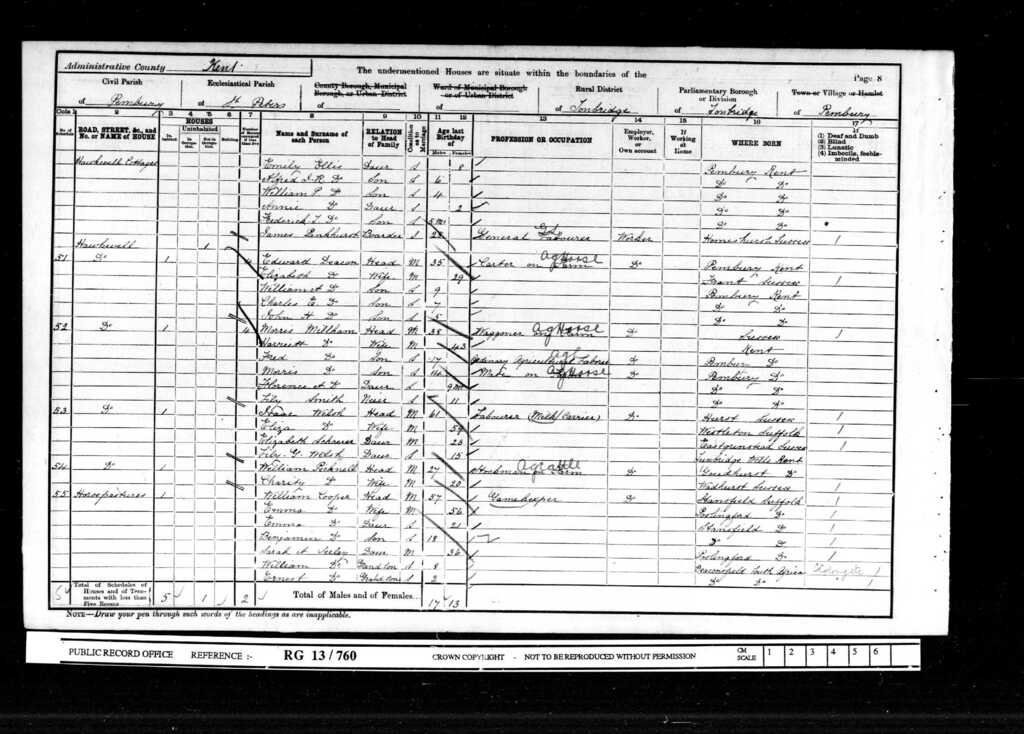 Administrative County Kent
The undermentioned Houses are situate within the boundaries of the
Page 8
Civil Parish of Pembury
Ecclesiastical Parish of St Peters
County Borough, Municipal Borough, or Urban District of
Ward of Municipal Borough or of Urban District of
Rural District of Tonbridge
Parliamentary Borough or Division of Tonbridge
Town or Village or Hamlet of Pembury
Cols. 1 2 3 4 5 6 7 8 9 10 11 12 13 14 15 16 17
ROAD, STREET, &c., and No. or NAME of HOUSE
HOUSES
In-habited
Uninhabited
In Occupation
Not in Occupation
Building
Name and Surname of each Person
RELATION to Head of Family
Condition as to Marriage
Age last Birthday of
Males
Females
PROFESSION OR OCCUPATION
Employer, Worker, or Own account
If Working at Home
WHERE BORN
(1) Deaf and Dumb
(2) Blind
(3) Lunatic
(4) Imbecile, feeble-minded
Hawkwell Cottages Emily Ellis Daur S 8 Pembury Kent
Alfred J. R. Do Son S 6 Do Do
William P. Do Son S 4 Do Do
Annie Do Daur S 2 Do Do
Frederick T. Do Son S 5 m Do Do
James Penkhurst Boarder S 28 General Labourer Worker Sussex
Hawkwell 1
51 Do 1 4 Edward Deacon Head M 35 Carter on Farm Ag Horse Do Pembury Kent
Elizabeth Do Wife M 29 Frant Sussex
William Do Son S 9 Pembury Kent
Charles E. Do Son S 7 Do Do
John H. Do Son S 5 Do Do
52 Do 1 4 Morris Millham Head M 38 Waggoner on Farm Ag Horse Do Sussex
Harriett Do Wife M 43 Kent
Fred Do Son S 17 Ordinary Agricultural Labourer Do Pembury Do
Morris Do Son S Mate on Ag Horse Do Pembury Do
Florence A. Do Daur S 9 m Do Do
Lily Smith Niece S 11 Do Do
53 Do 1 Isaac Welsh Head M 61 Labourer (Milk Carrier) Do Hurst Sussex
Eliza Do Wife M 59 Westleton Suffolk
Elizabeth Daur M 23 Eastgrinstead Sussex
Lily G. Welsh Daur S 15 Tunbridge Wells Kent
54 Do 1 William Pecknell Head M 27 on Farm Ag Cattle Do Goudhurst Do
Charity Do Wife M 20 Wadhurst Sussex
55 Horsepastures 1 William Cooper Head M 57 Gamekeeper Do Stansfield Suffolk
Emma Do Wife M 56 Poslingford Do
Emma Do Daur S 21 Stansfield Do
Benjamin Do Son S 18 Do Do
Sarah A. Seeley Daur M 36 Poslingford Do
William Do Grandson S 8 Beaconsfield South Africa
Ernest Do Grandson S 2 Do Do
Total of Schedules of Houses and of Tenements with less than Five Rooms 5 1 2
Total of Males and of Females... 17 13
NOTE—Draw your pen through such words of the headings as are inapplicable.
PUBLIC RECORD OFFICE REFERENCE :- RG 13/760 CROWN COPYRIGHT - NOT TO BE REPRODUCED WITHOUT PERMISSION CM SCALE 1 2 3 4 5 6